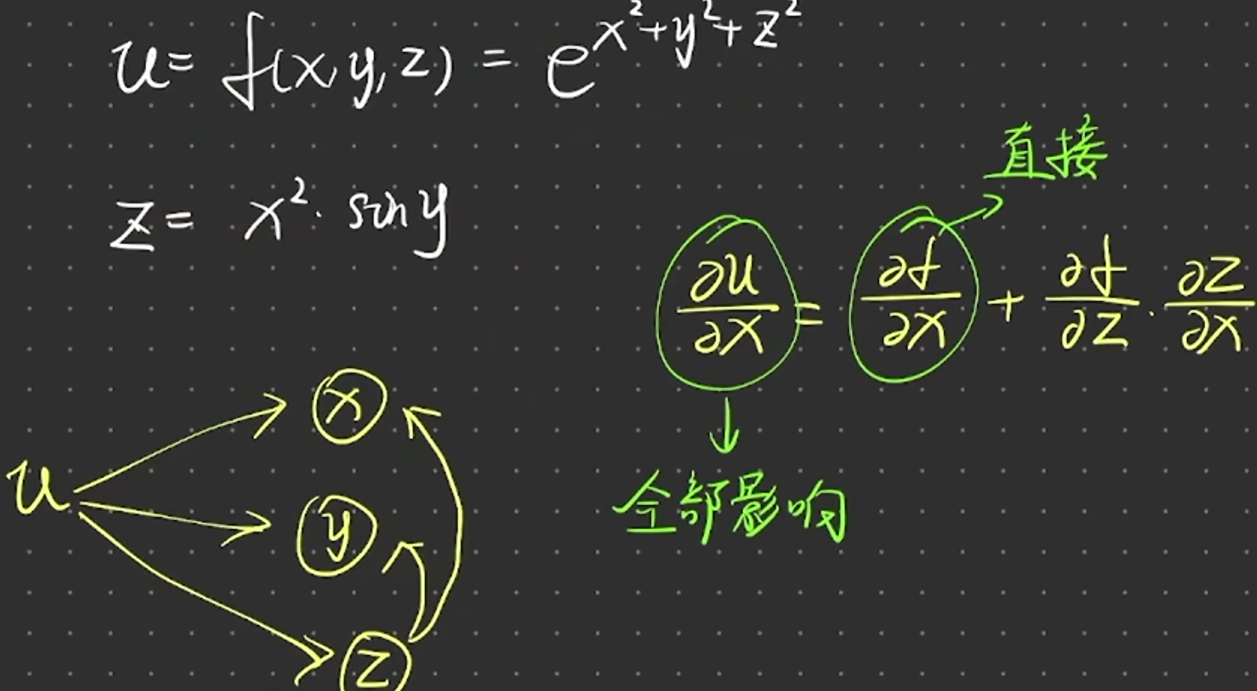 u = f(x, y, z) = e^{x²+y²+z²}
z = x² · sin y
直接
∂u/∂x = ∂f/∂x + ∂f/∂z · ∂z/∂x
全部影响
x
u
y
z